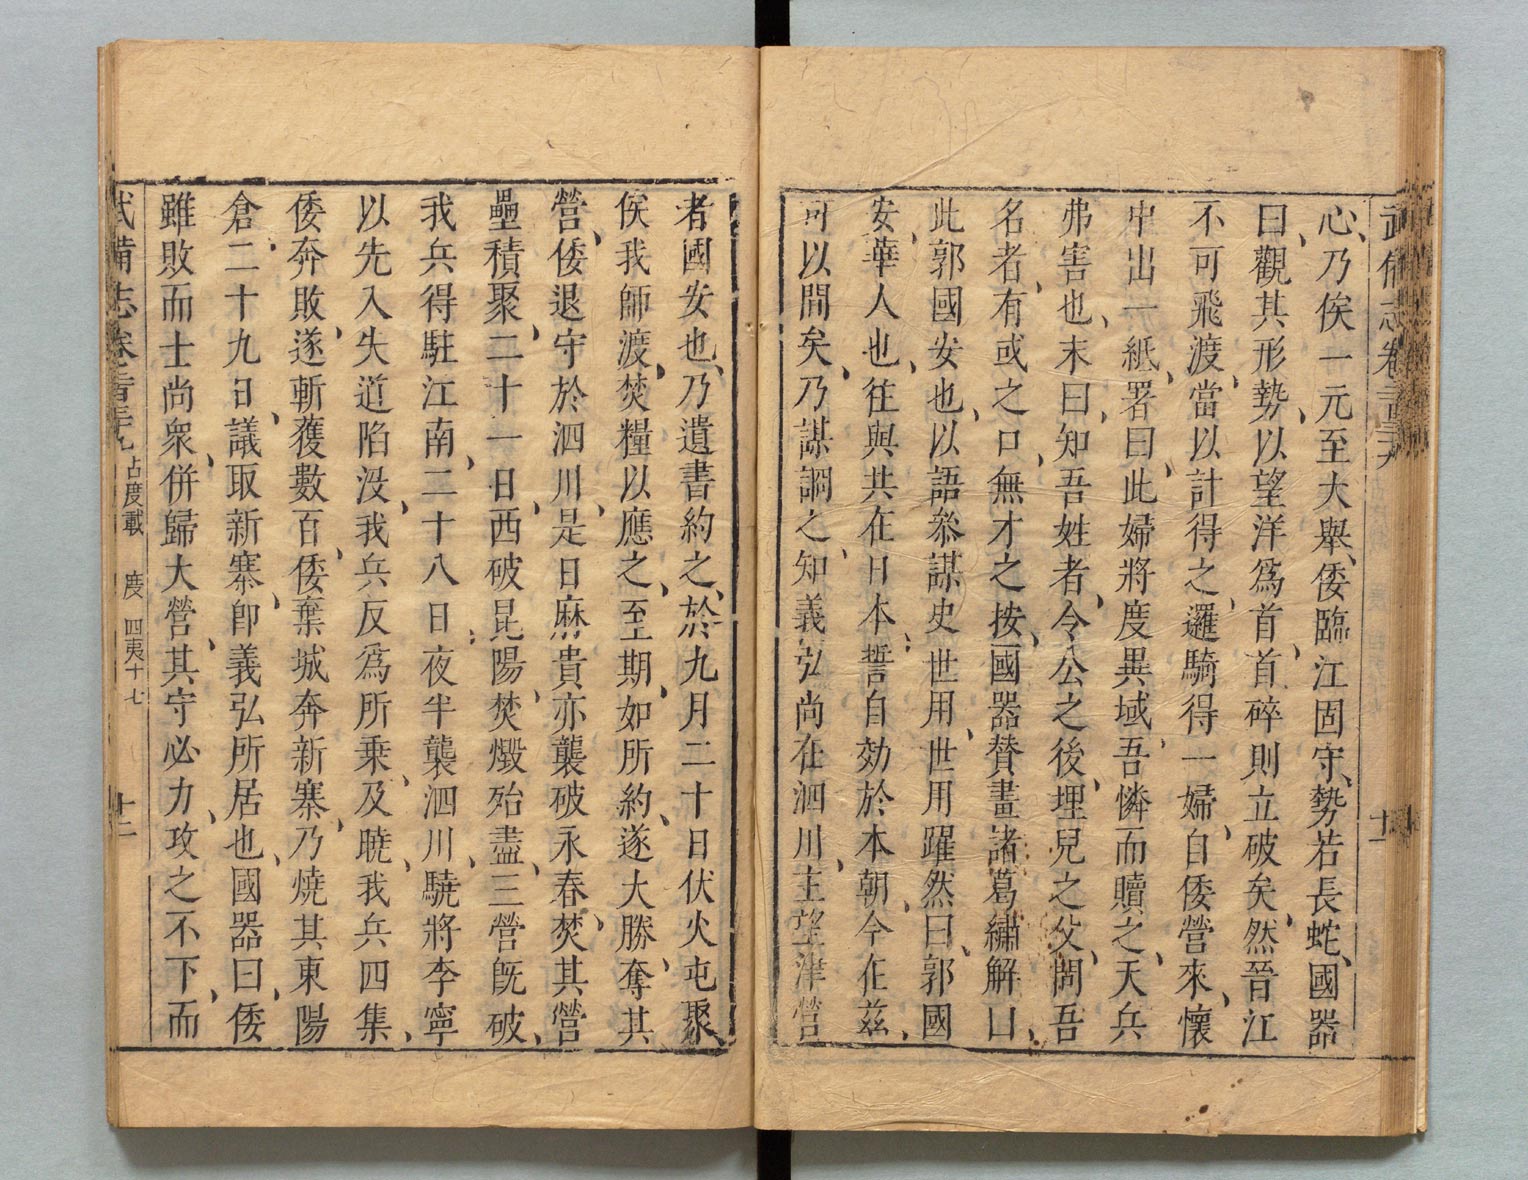 武備志卷二百三十九
十一
心乃俟一元至大舉倭臨江固守勢若長蛇國器
曰觀其形勢以望洋爲首首碎則立破矣然晉江
不可飛渡當以計得之邏騎得一婦自倭營來懷
中出一紙署曰此婦將度異域吾憐而贖之天兵
弗害也末曰知吾姓者令公之後埋兒之父問吾
名者有或之口無才之按國器贊畫諸葛繡解曰
此郭國安也以語叅謀史世用世用躍然曰郭國
安華人也往與共在日本誓自効於本朝今在兹
可以間矣乃謀調之知義弘尚在泗川主望津營
者國安也乃遺書約之於九月二十日伏火屯聚
俟我師渡焚糧以應之至期如所約遂大勝奪其
營倭退守於泗川是日麻貴亦襲破永春焚其營
壘積聚二十一日西破昆陽焚燬殆盡三營旣破
我兵得駐江南二十八日夜半襲泗川驍將李寧
以先入失道陷没我兵反爲所乗及曉我兵四集
倭奔敗遂斬獲數百倭棄城奔新寨乃燒其東陽
倉二十九日議取新寨卽義弘所居也國器曰倭
雖敗而士尚衆併歸大營其守必力攻之不下而
武備志卷二百三十九 占度載 度 四夷十七 十二